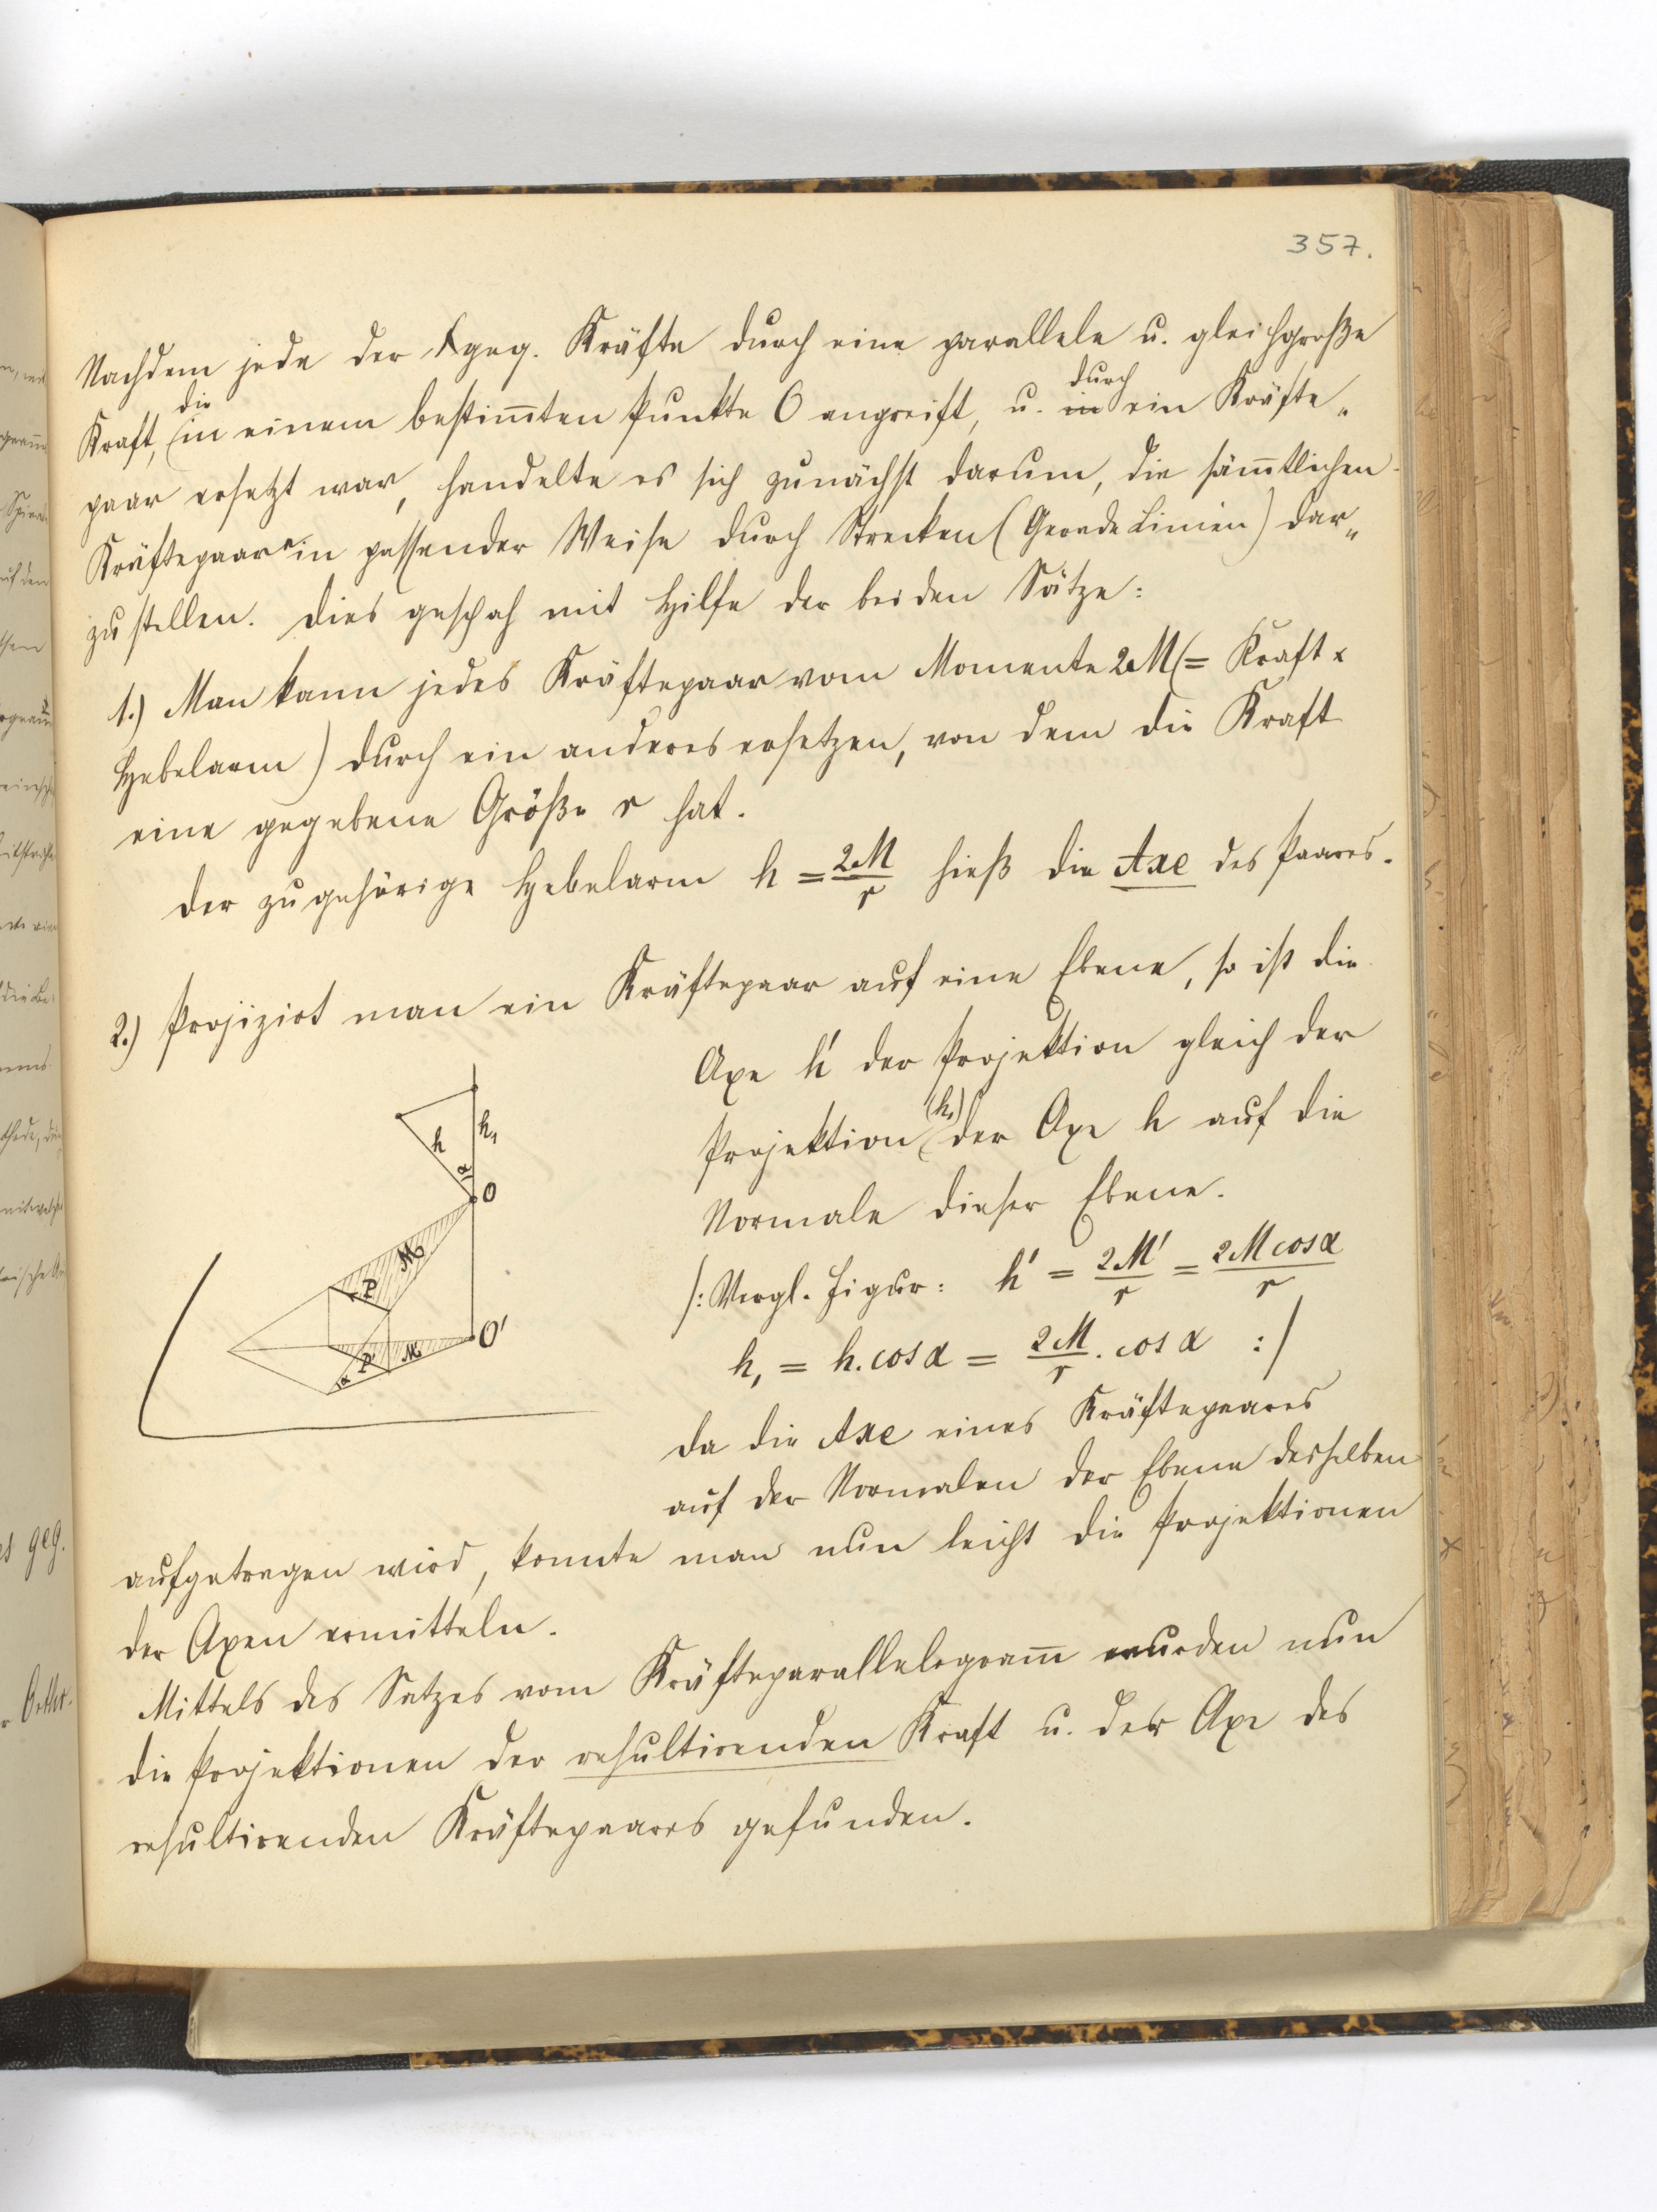 357.
Nachdem jede der geg. Kräfte durch eine parallele u. gleichgroße
Kraft, die in einem bestim̅ten Punkte O angreift, u. in durch ein Kräfte„
paar ersetzt war, handelte es sich zunächst darum, die säm̅tlichen
Kräftepaare in passender Weise durch Strecken (Gerade Linien) dar„
zustellen. Dies geschah mit Hilfe der beiden Sätze:
1.) Man kann jedes Kräftepaar vom Momente 2M (= Kraft x
Hebelarm) durch ein anderes ersetzen, von dem die Kraft
eine gegebene Größe r hat.
Der zugehörige Hebelarm h = 2M/r hieß die Axe des Paares.
2.) Projizirt man ein Kräftepaar auf eine Ebene, so ist die
Axe h' der Projektion gleich der
Projektion (h₁) der Axe h auf die
Normale dieser Ebene.
/: Vergl. Figur: h' = 2M'/r = 2M cos α/r
h₁ = h. cos α = 2M/r . cos α :/
Da die Axe eines Kräftepaares
auf der Normalen der Ebene desselben
aufgetragen wird, konnte man nun leicht die Projektionen
der Axen ermitteln.
Mittels des Satzes vom Kräfteparallelogram̅ wurden nun
die Projektionen der resultirenden Kraft u. der Axe des
resultirenden Kräftepaares gefunden.
h
h₁
α
O
M
P
O'
P'
M'
α